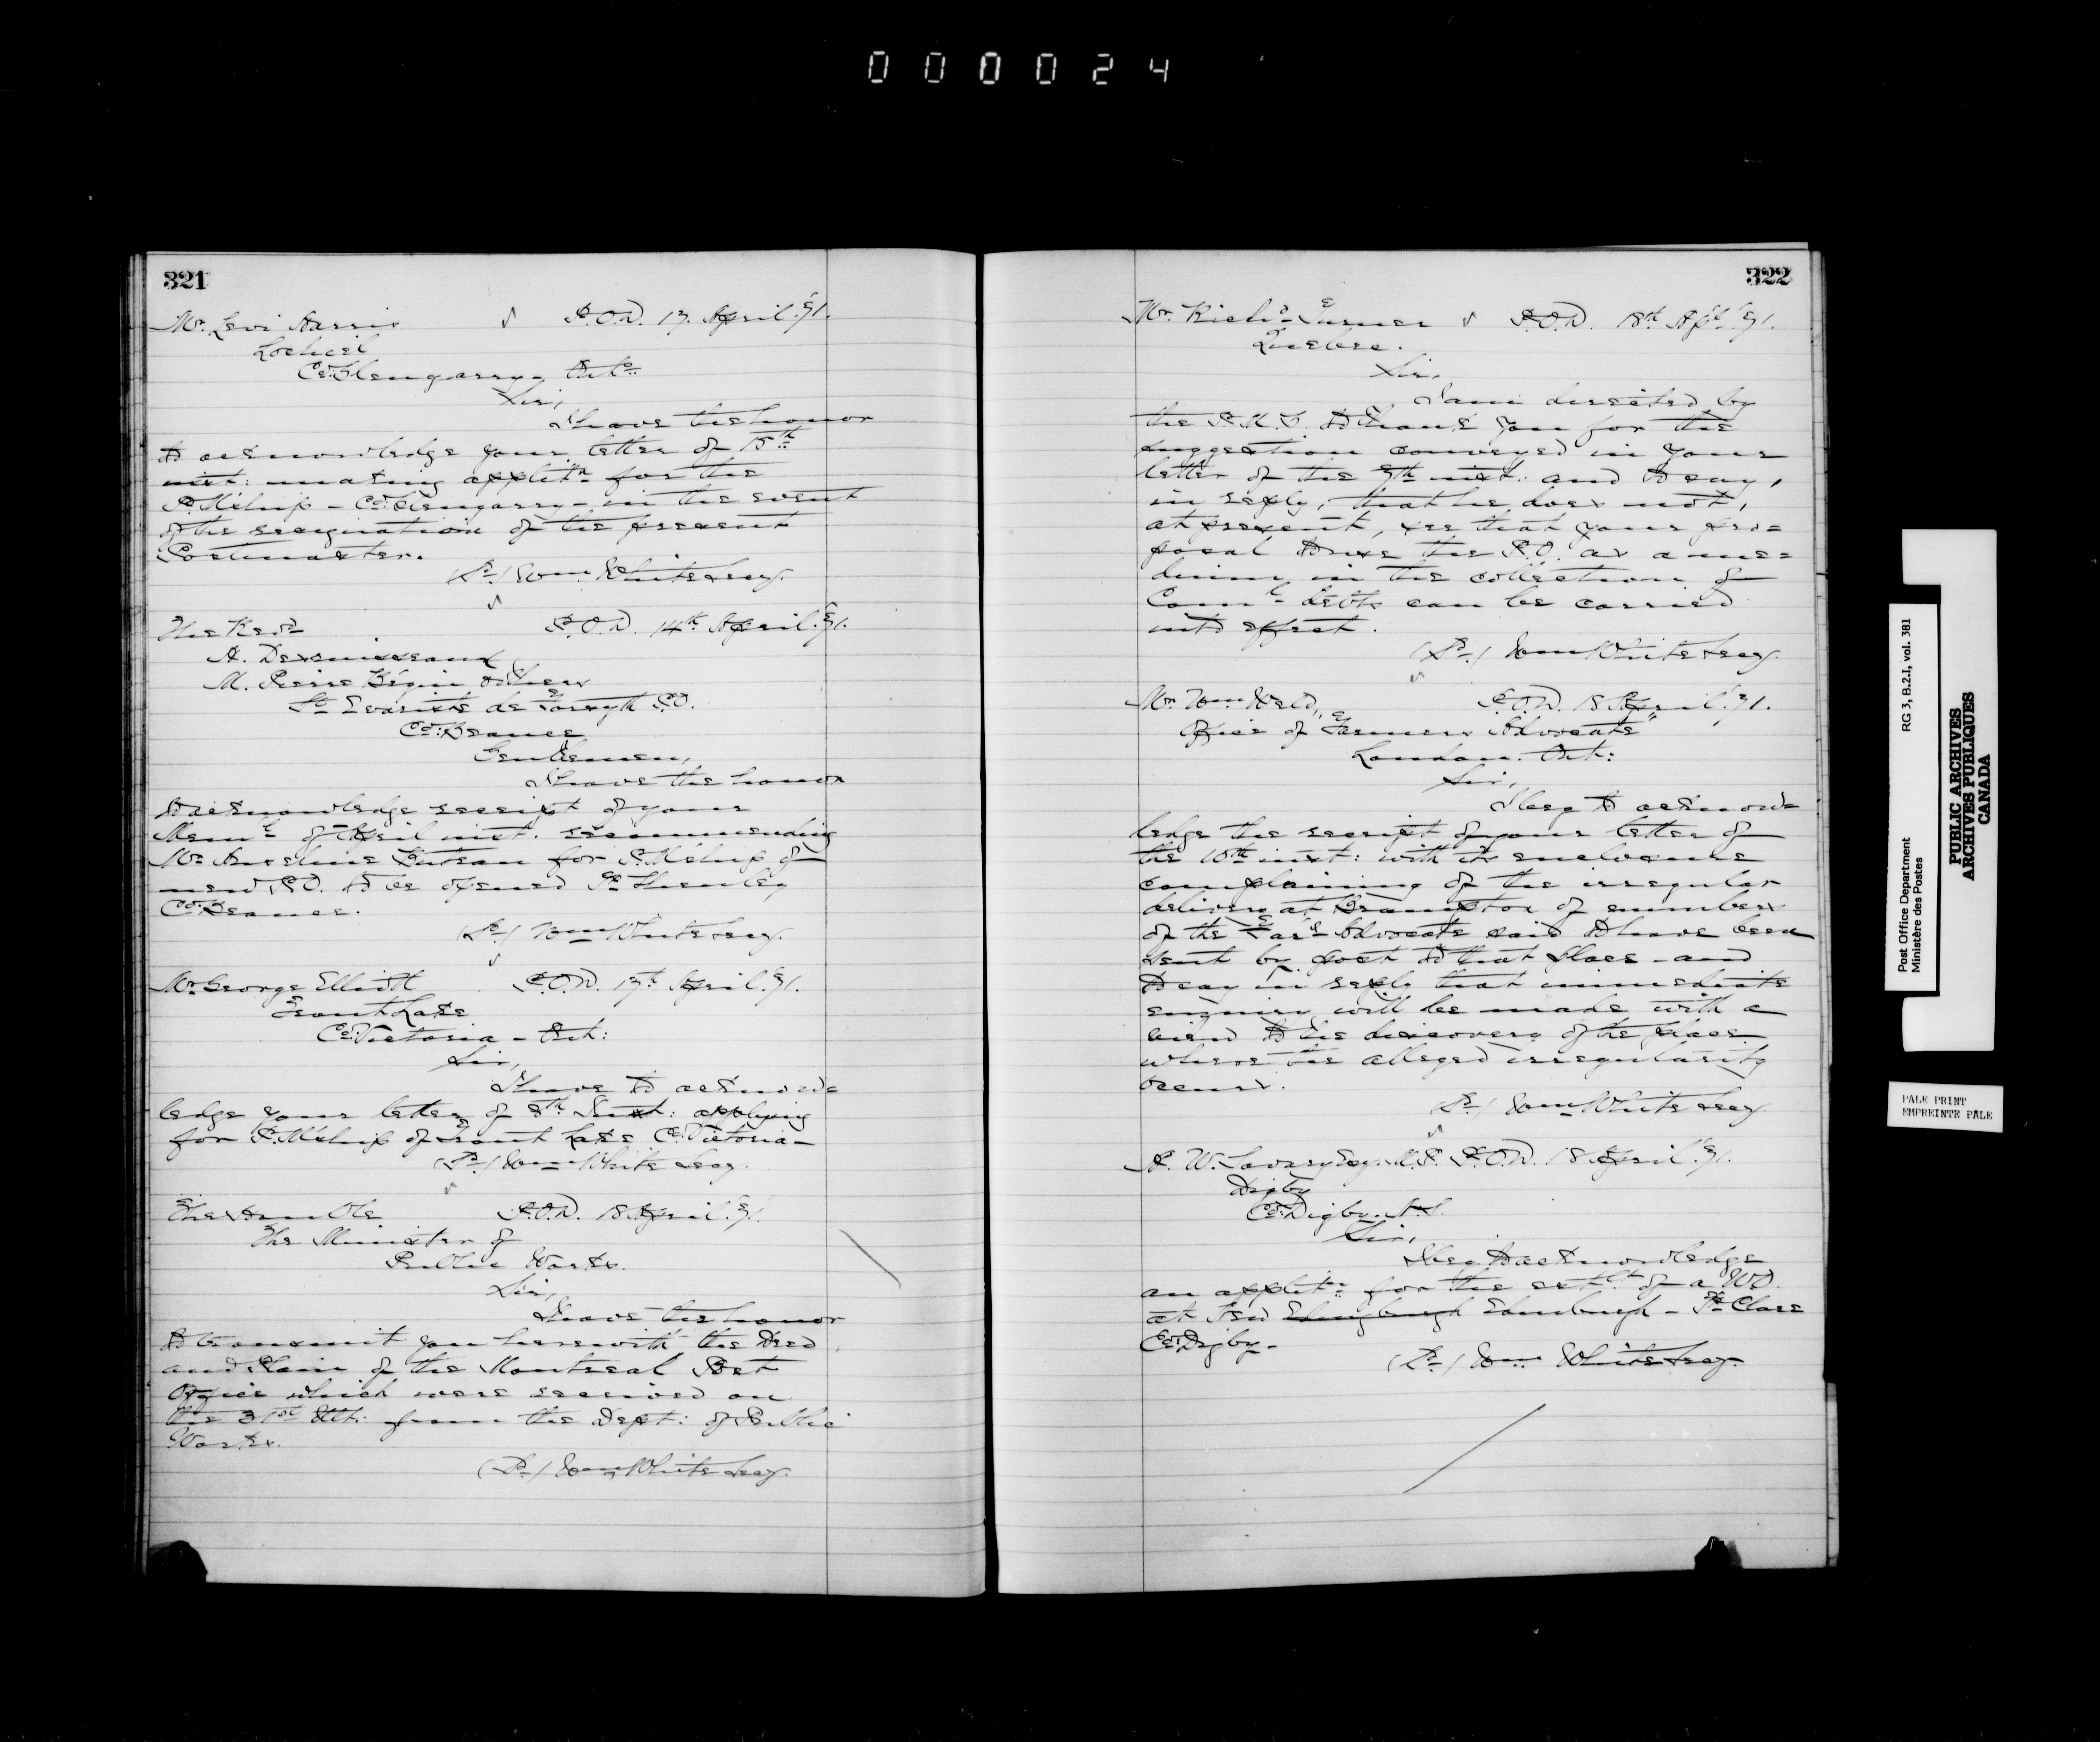 000024
321
Mr. Levi Harris P.O.D. 17. April. '71.
Lochiel
Co. Glengarry - Onto
Sir,
I have the honor
to acknowledge your letter of 15th
inst: making applitn for the
P.M'ship - Co. Glengarry - in the event
of the resignation of the present
Postmaster.
(Sd.) Wm White Secy.
The Revd P.O.D. 14th April. '71.
A. Desruisseaux
M. Pierre Bégin & others
St Evariste de Forsyth P.O.
Co: Beauce
Gentlemen,
I have the honor
to acknowledge receipt of your
Meml of April inst. recommending
Mr Anselme Buteau for P.M'ship of
new P.O. to be opened
Co: Beauce.
(Sd.) Wm White Secy.
Mr George Elliott P.O.D. 17th April. '71.
Front Lake
Co: Victoria - Ont:
Sir,
I have to acknow=
ledge your letter of 8th Inst: applying
for P.M'ship of Front Lake Co. Victoria -
(Sd.) Wm White Secy.
The Honble P.O.D. 18 April. '71.
The Minister of
Public Works.
Sir,
I have the honor
to transmit you herewith the Deed
and Plan of the Montreal Post
Office which were received on
the 31st Ult: from the Dept: of Public
Works.
(Sd.) Wm White Secy.
322
Mr. Richd Turner P.O.D. 18th Apl. '71.
Quebec.
Sir,
I am directed by
the P.M.G. to thank you for the
suggestion conveyed in your
letter of the 7th inst: and to say,
in reply, that he does not,
at present, see that your pro=
posal to use the P.O. as a me=
dium in the collection of
Coml debts can be carried
into effect.
(Sd.) Wm White Secy.
Mr. Wm Weld, P.O.D. 18 April. '71.
Office of "Farmers Advocate"
London. Ont:
Sir,
I beg to acknow=
ledge the receipt of your letter of
the 10th inst: with its enclosure
complaining of the irregular
delivery at Brampton of numbers
of the Far's Advocate said to have been
sent by post to that place - and
to say in reply that immediate
enquiry will be made with a
view to the discovery of the place
where the alleged irregularity
occurs.
(Sd.) Wm White Secy.
A. W. Savary Esq. M.P. P.O.D. 18 April. '71.
Digby
Co: Digby. N.S.
Sir,
I beg to acknowledge
an applitn for the estblt of a WO
at New Edingburgh Edinburgh - St Clare
Co: Digby -
(Sd.) Wm. White Secy.
Post Office Department RG 3, B.2.1, vol. 381
Ministère des Postes
PUBLIC ARCHIVES
ARCHIVES PUBLIQUES
CANADA
PALE PRINT
EMPREINTE PALE